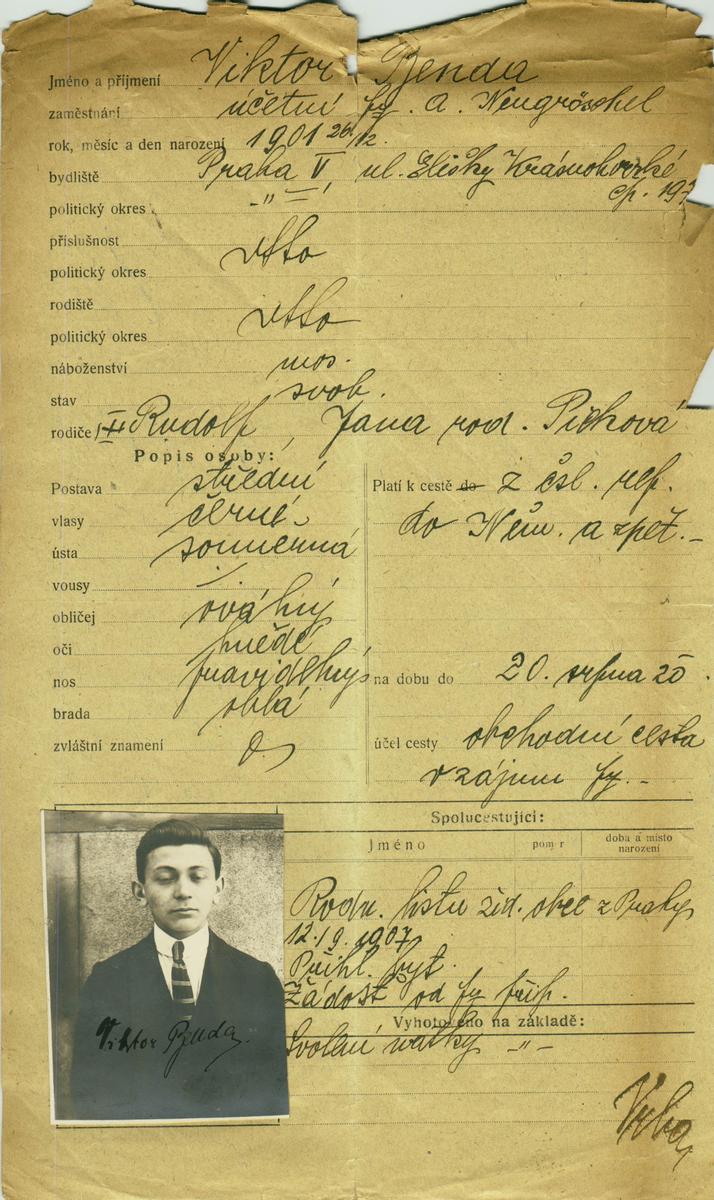 Jméno a příjmení Viktor Benda
zaměstnání účetní fy. A. Neugröschel
rok, měsíc a den narození 1901 26/12.
bydliště Praha V ul. Elišky Krásnohorské
čp. 19
politický okres -"-
příslušnost
dtto
politický okres
rodiště
dtto
politický okres
náboženství mos.
stav svob.
rodiče Rudolf, Jana rod. Picková
Popis osoby:
Postava střední
vlasy černé
ústa souměrná
vousy /
obličej oválný
oči hnědé
nos pravidelný
brada oblá
zvláštní znamení
Platí k cestě do z čsl. rep.
do Něm. a zpět. -
na dobu do 20. srpna 20
účel cesty obchodní cesta
v zájmu fy. -
Spolucestující:
Jméno
pom r
doba a místo
narození
Rodn. listu žid. obce z Prahy
12./9. 1907
Přihl. byt.
Žádost od fy
Vyhotoveno na základě:
Svolení matky -"-
Viktor Benda